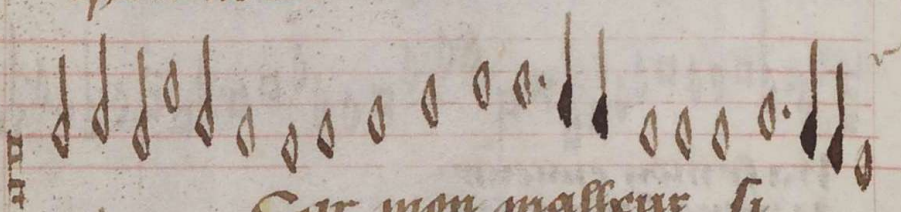 Car mon malheur si